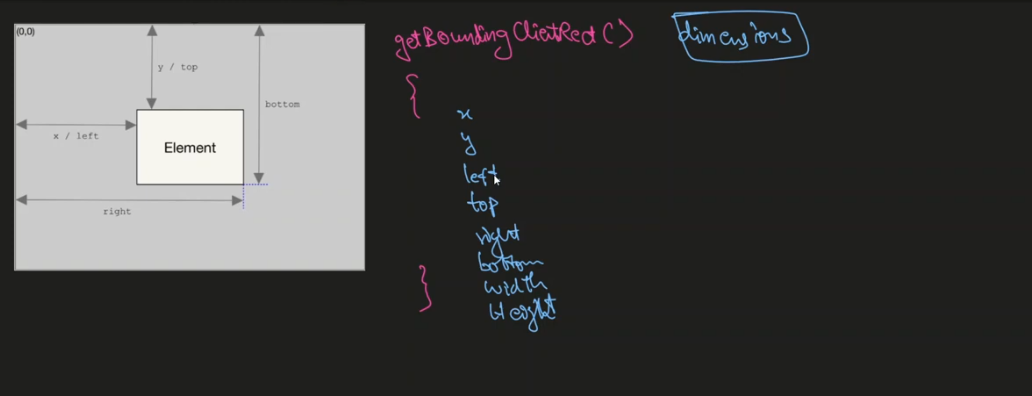 (0,0)
y / top
bottom
x / left
Element
right
getBoundingClientRect() dimensions
{
x
y
left
top
right
bottom
width
Height
}